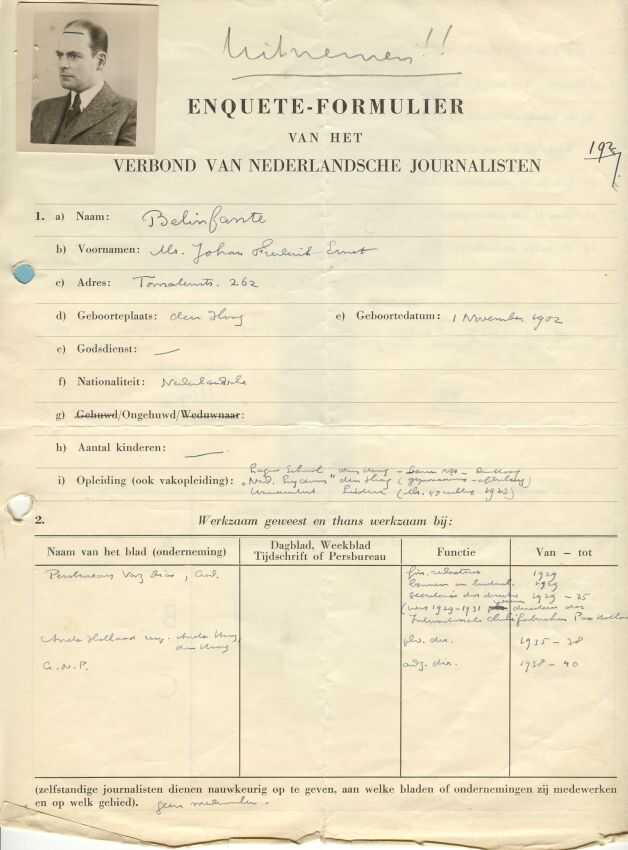 Uitnemen!!
ENQUETE-FORMULIER
VAN HET
VERBOND VAN NEDERLANDSCHE JOURNALISTEN
1. a) Naam: Belinfante
b) Voornamen: Mr. Johan Frederik Ernst
c) Adres: 262
d) Geboorteplaats: den Haag e) Geboortedatum: 1 November 1902
e) Godsdienst: —
f) Nationaliteit: Nederlandsche
g) Gehuwd/Ongehuwd/Weduwnaar:
h) Aantal kinderen: —
i) Opleiding (ook vakopleiding): Lagere School den Haag
"Ned. Lyceum" den Haag (gymnasium-afdeling)
Universiteit Leiden
2. Werkzaam geweest en thans werkzaam bij:
Naam van het blad (onderneming) Dagblad, Weekblad Tijdschrift of Persbureau Functie Van – tot
Persbureau Vaz Dias, 1929
1929
secretaris der directie 1929 – 35
(van 1929-1931 directeur der
Internationale
Aneta Holland Aneta Haag, plv. dir. 1935 – 38
den Haag
G.N.P. adj. dir. 1938 – 40
(zelfstandige journalisten dienen nauwkeurig op te geven, aan welke bladen of ondernemingen zij medewerken
en op welk gebied). geen